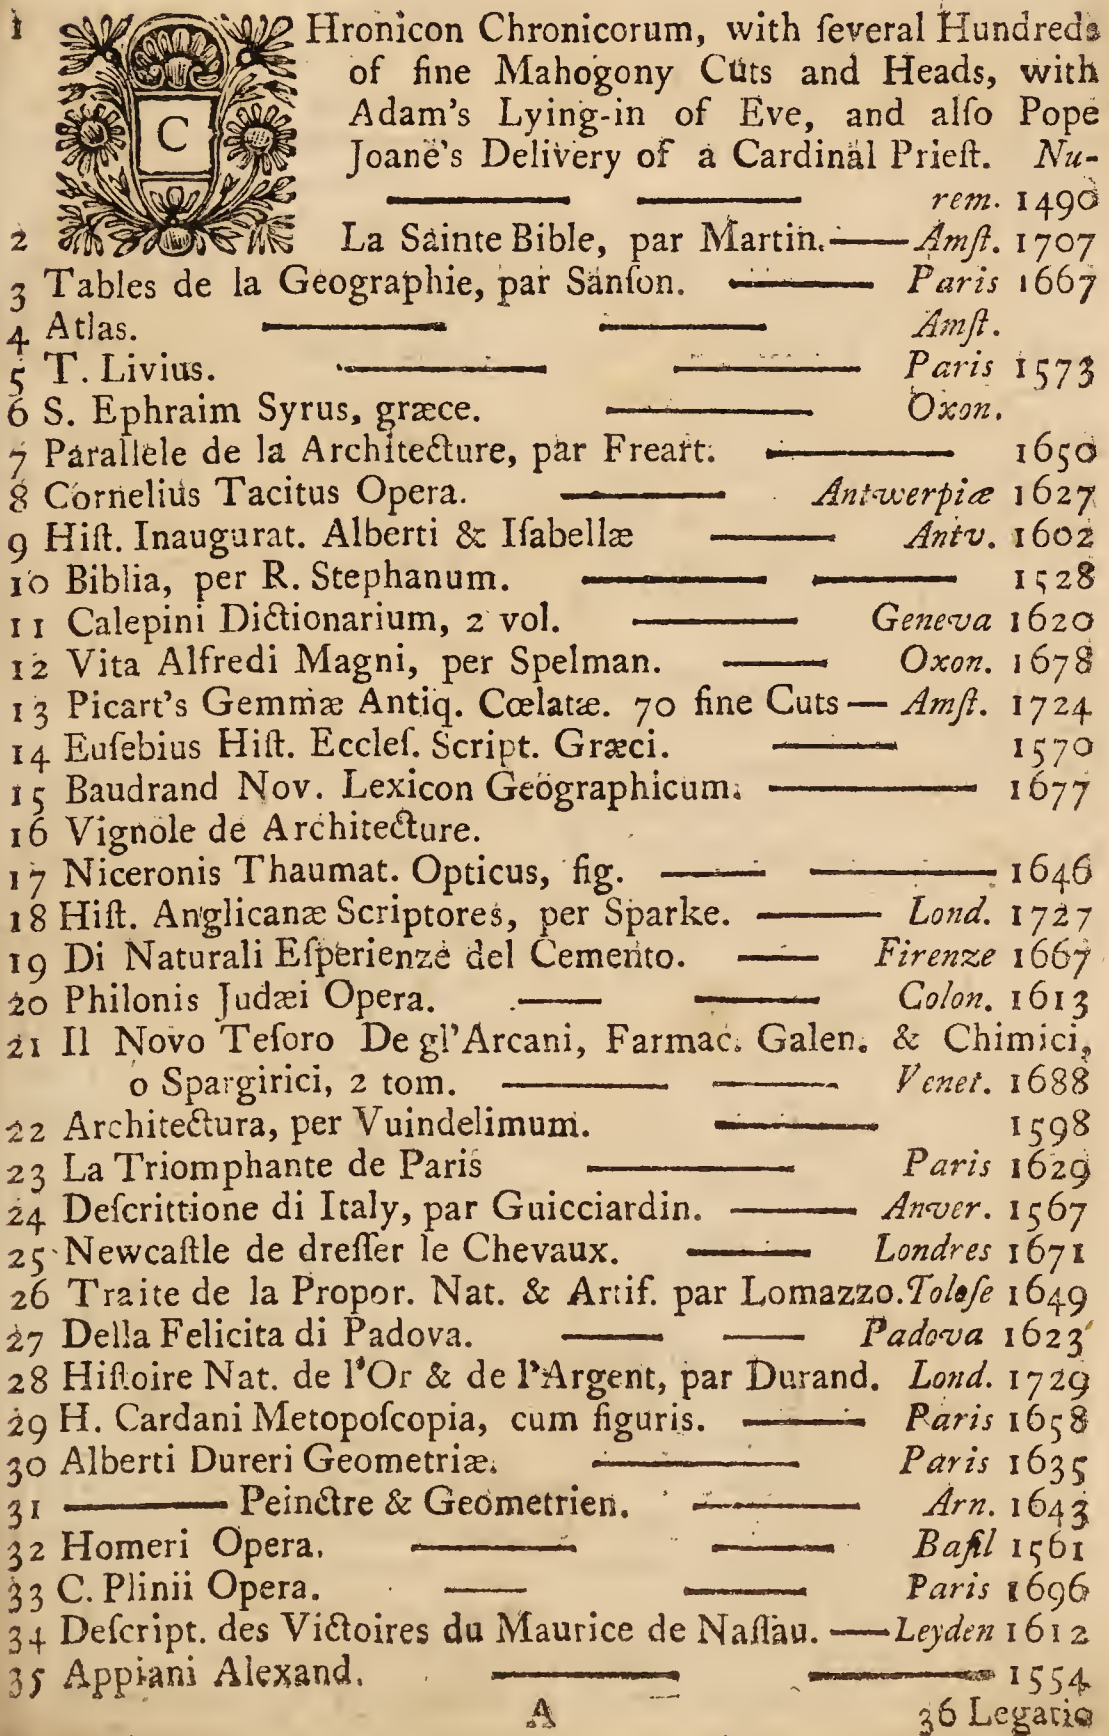 1 CHronicon Chronicorum, with ſeveral Hundreds
of fine Mahogony Cuts and Heads, with
Adam's Lying-in of Eve, and alſo Pope
Joane's Delivery of a Cardinal Prieſt. Nu-
rem. 1490
2 La Sainte Bible, par Martin.——Amſt. 1707
3 Tables de la Geographie, par Sanſon. —— Paris 1667
4 Atlas. —— —— Amſt.
5 T. Livius. —— —— Paris 1573
6 S. Ephraim Syrus, græce. —— Oxon.
7 Parallele de la Architecture, par Freart. —— 1650
8 Cornelius Tacitus Opera. —— Antwerpiæ 1627
9 Hiſt. Inaugurat. Alberti & Iſabellæ —— Antv. 1602
10 Biblia, per R. Stephanum. —— —— 1528
11 Calepini Dictionarium, 2 vol. —— Geneva 1620
12 Vita Alfredi Magni, per Spelman. —— Oxon. 1678
13 Picart's Gemmæ Antiq. Cœlatæ. 70 fine Cuts — Amſt. 1724
14 Euſebius Hiſt. Eccleſ. Script. Græci. —— 1570
15 Baudrand Nov. Lexicon Geographicum. —— 1677
16 Vignole de Architecture.
17 Niceronis Thaumat. Opticus, fig. —— —— 1646
18 Hiſt. Anglicanæ Scriptores, per Sparke. —— Lond. 1727
19 Di Naturali Eſperienze del Cemento. —— Firenze 1667
20 Philonis Judæi Opera. —— —— Colon. 1613
21 Il Novo Teſoro De gl'Arcani, Farmac. Galen. & Chimici,
o Spargirici, 2 tom. —— —— Venet. 1688
22 Architectura, per Vuindelimum. —— 1598
23 La Triomphante de Paris —— Paris 1629
24 Deſcrittione di Italy, par Guicciardin. —— Anver. 1567
25 Newcaſtle de dreſſer le Chevaux. —— Londres 1671
26 Traite de la Propor. Nat. & Artif. par Lomazzo. Toloſe 1649
27 Della Felicita di Padova. —— —— Padova 1623
28 Hiſtoire Nat. de l'Or & de l'Argent, par Durand. Lond. 1729
29 H. Cardani Metopoſcopia, cum figuris. —— Paris 1658
30 Alberti Dureri Geometriæ. —— Paris 1635
31 —— Peinctre & Geometrien. —— Arn. 1643
32 Homeri Opera. —— —— Baſil 1561
33 C. Plinii Opera. —— —— Paris 1696
34 Deſcript. des Victoires du Maurice de Naſſau. ——Leyden 1612
35 Appiani Alexand. —— —— 1554
A 36 Legatio